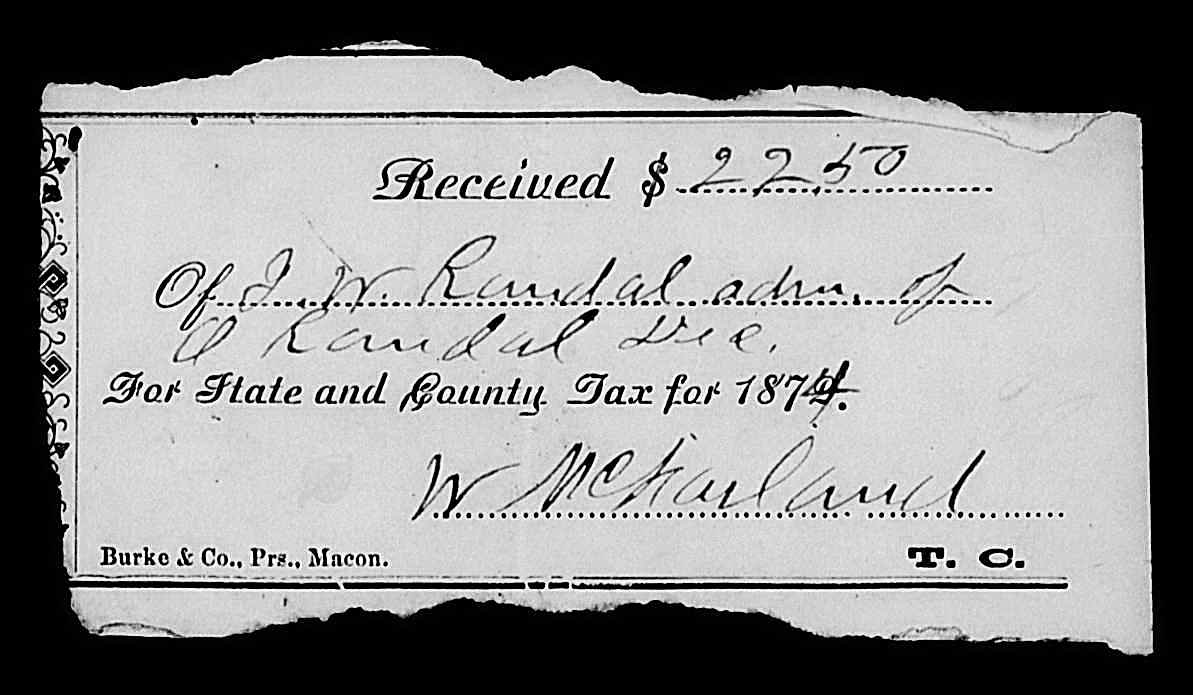 Received $ 22.50
Of J. W. Randal adm. of
O Randal Dec.
For State and County Tax for 1874.
W McFarland
Burke & Co., Prs., Macon. T. C.